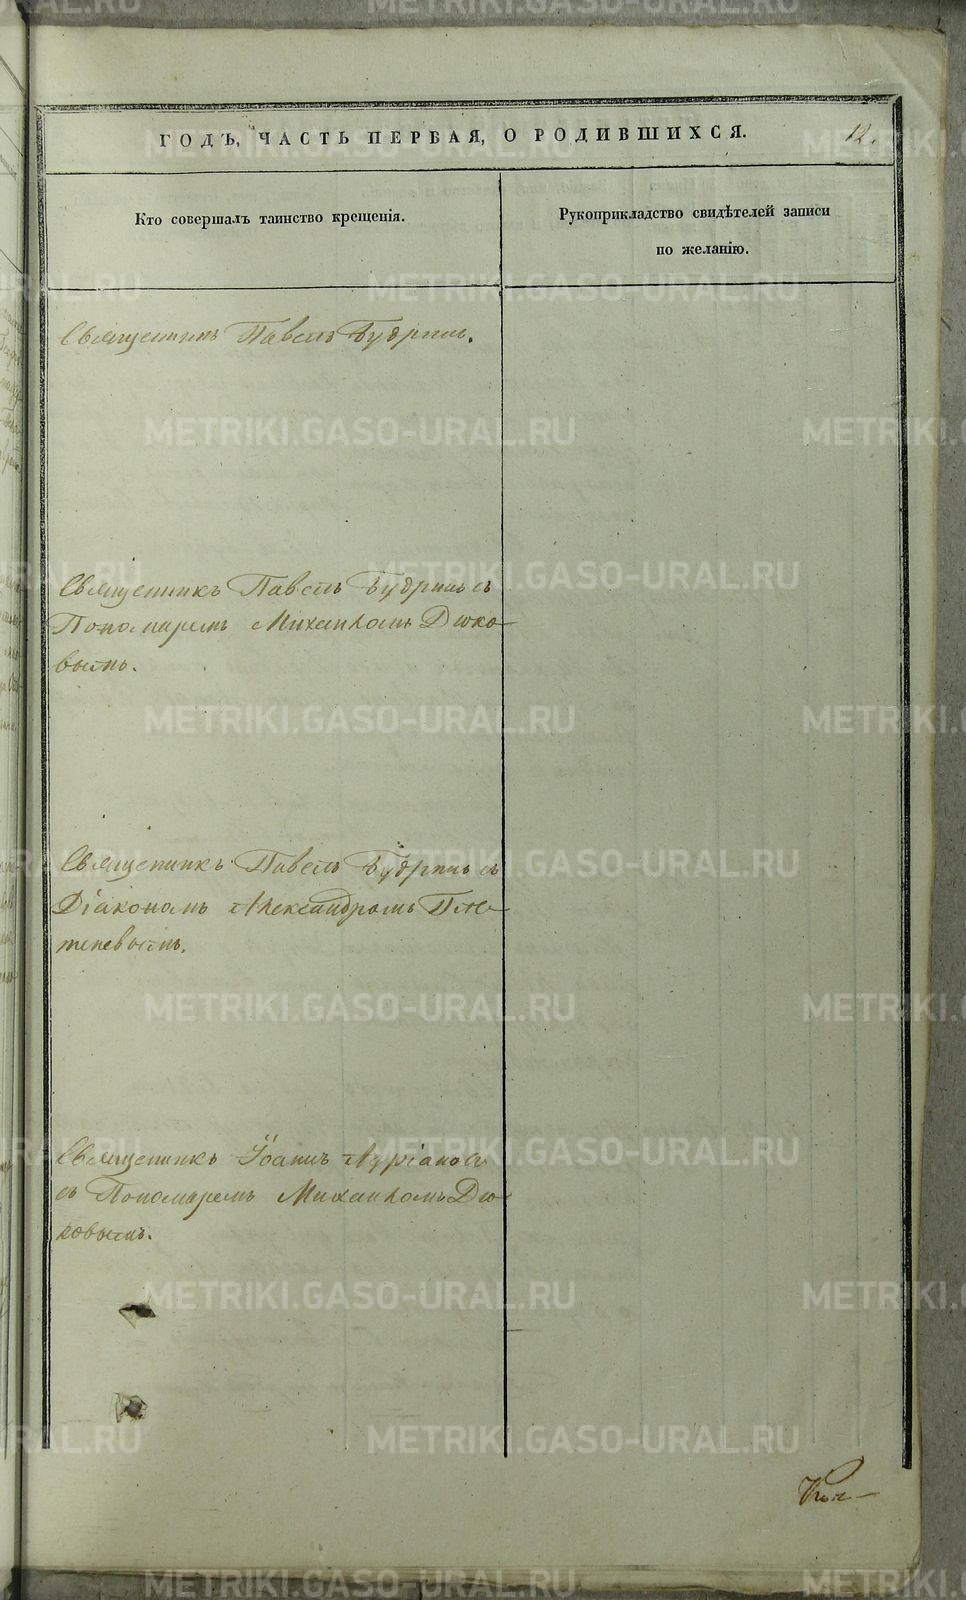 ГОДЪ, ЧАСТЬ ПЕРВАЯ, О РОДИВШИХСЯ.
12.
Кто совершалъ таинство крещенія.
Рукоприкладство свидѣтелей записи
по желанію.
Священникъ Павелъ Будринъ.
Священникъ Павелъ Будринъ съ
Пономаремъ Михаиломъ Дюко-
вымъ.
Священникъ Павелъ Будринъ съ
Діакономъ Александромъ
Священникъ Іоаннъ
съ Пономаремъ Михаиломъ Дю-
ковымъ.
METRIKI.GASO-URAL.RU